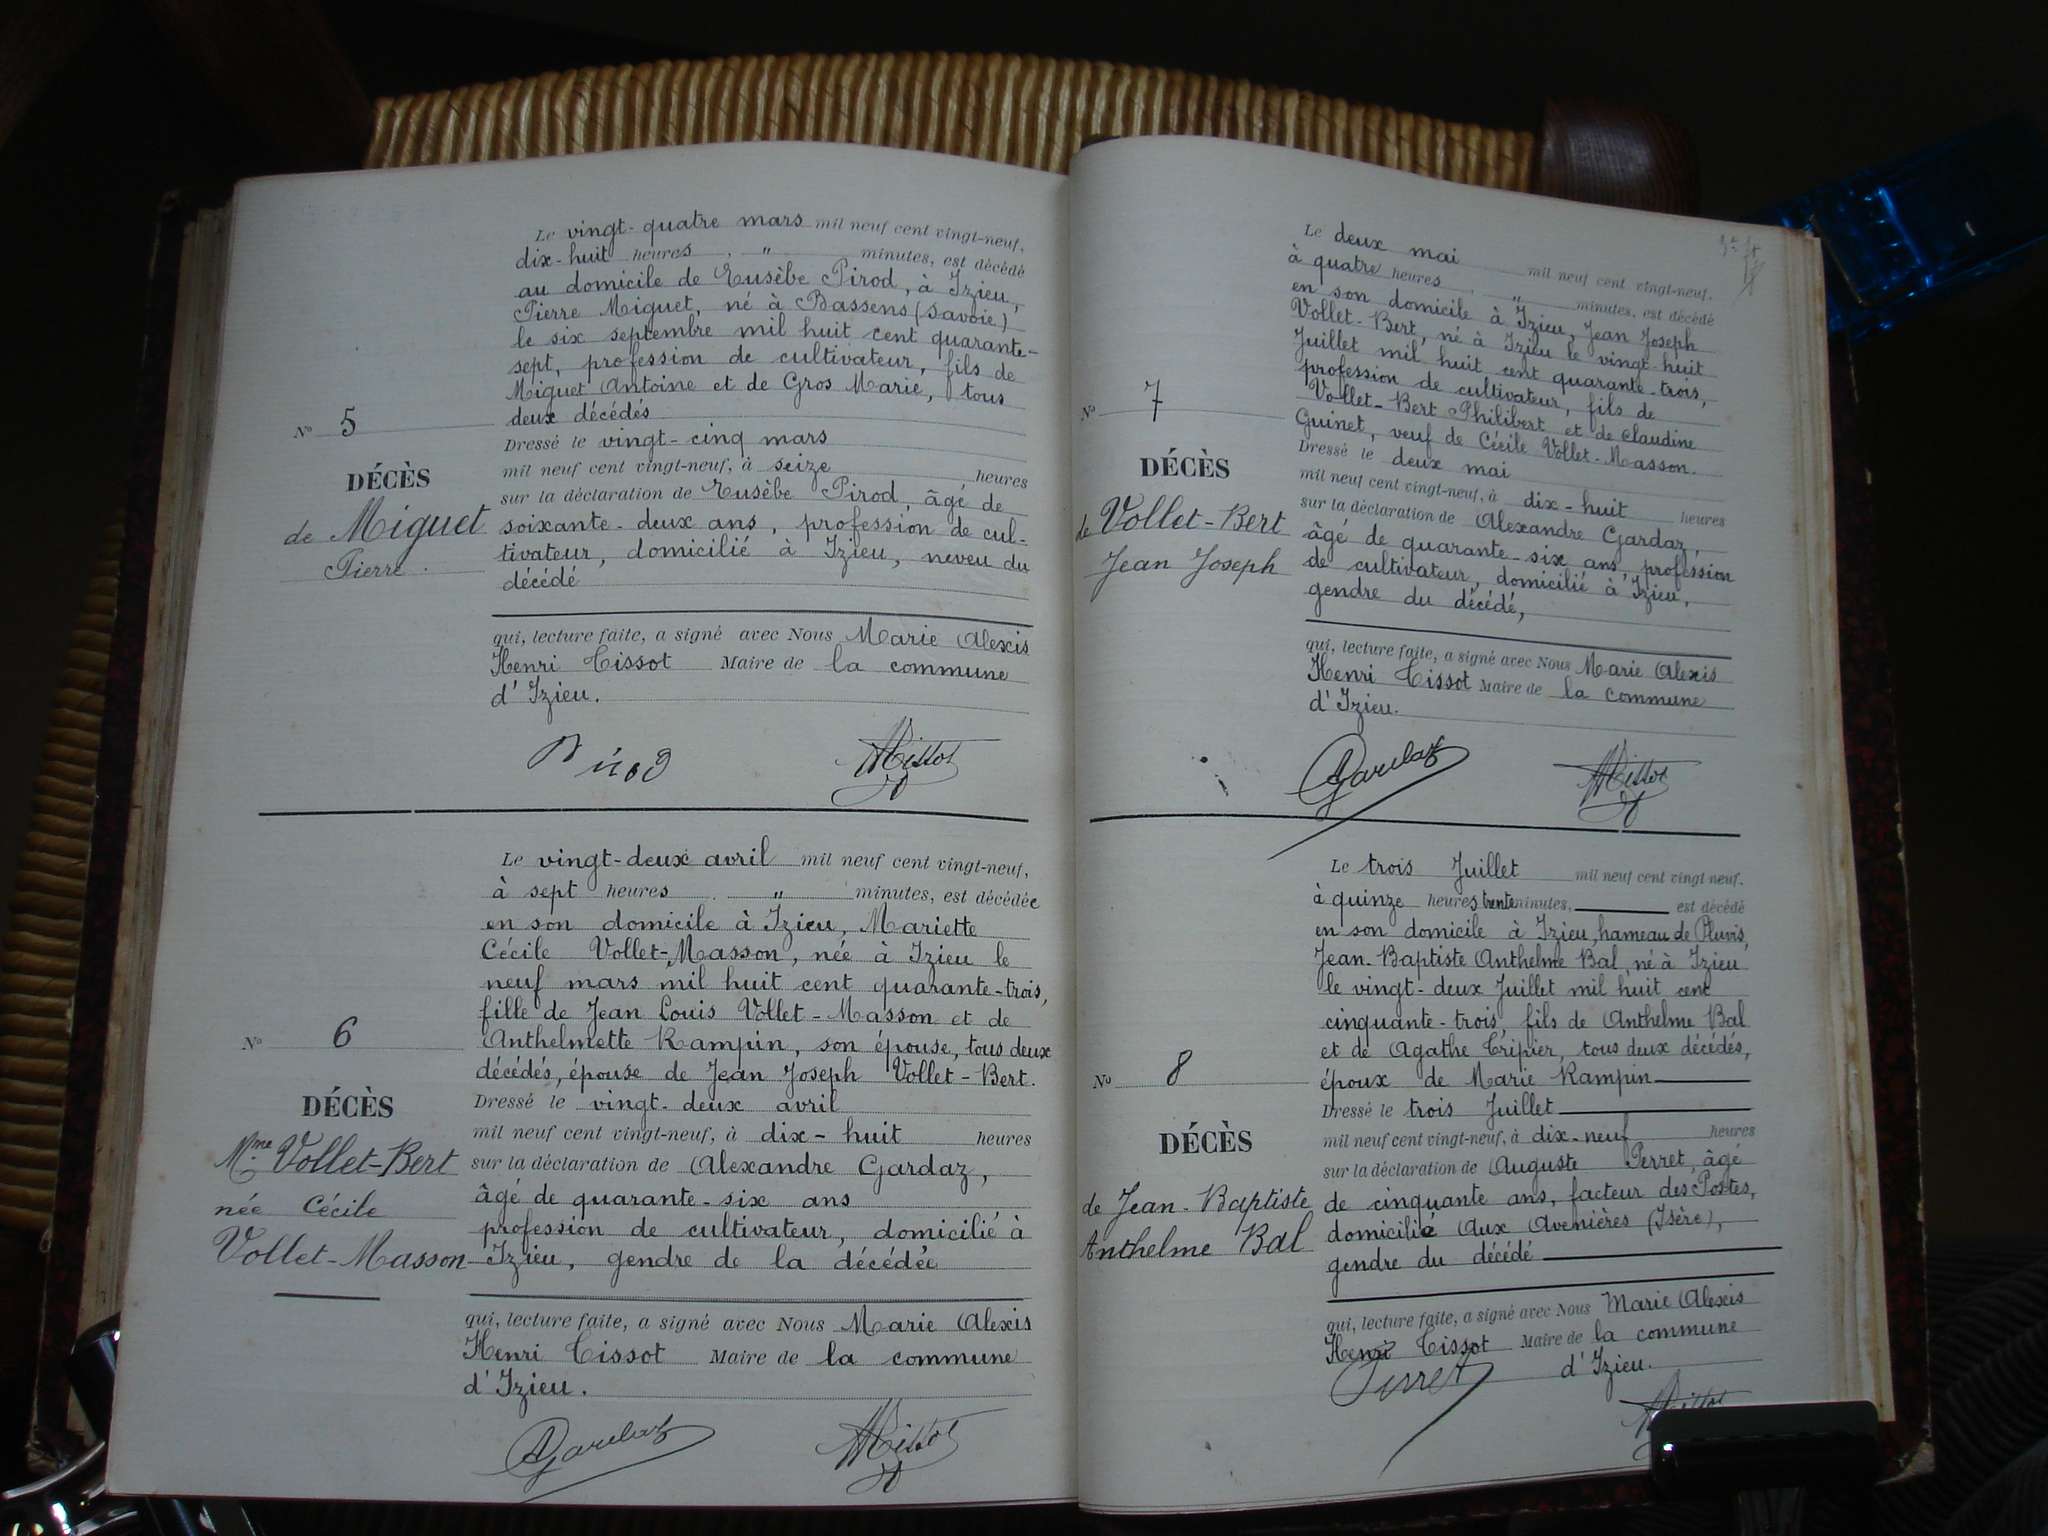 Le vingt-quatre mars mil neuf cent vingt-neuf,
dix-huit heures , " minutes, est décédé
au domicile de Eusèbe Pirod, à Izieu,
Pierre Miguet, né à Bassens (Savoie)
le six septembre mil huit cent quarante-
sept, profession de cultivateur, fils de
Miguet Antoine et de Gros Marie, tous
deux décédés
Dressé le vingt-cinq mars
mil neuf cent vingt-neuf, à seize heures
sur la déclaration de Eusèbe Pirod, âgé de
soixante-deux ans, profession de cul-
tivateur, domicilié à Izieu, neveu du
décédé
qui, lecture faite, a signé avec Nous Marie Alexis
Henri Tissot Maire de la commune
d'Izieu.
No 5
DÉCÈS
de Miguet
Pierre.
Pirod Tissot
Le vingt-deux avril mil neuf cent vingt-neuf,
à sept heures . " minutes, est décédée
en son domicile à Izieu, Mariette
Cécile Vollet-Masson, née à Izieu le
neuf mars mil huit cent quarante-trois,
fille de Jean Louis Vollet-Masson et de
Anthelmette Rampin, son épouse, tous deux
décédés, épouse de Jean Joseph Vollet-Bert.
Dressé le vingt-deux avril
mil neuf cent vingt-neuf, à dix-huit heures
sur la déclaration de Alexandre Gardaz,
âgé de quarante-six ans
profession de cultivateur, domicilié à
Izieu, gendre de la décédée
qui, lecture faite, a signé avec Nous Marie Alexis
Henri Tissot Maire de la commune
d'Izieu.
No 6
DÉCÈS
Mme Vollet-Bert
née Cécile
Vollet-Masson
Gardaz Tissot
Le deux mai mil neuf cent vingt-neuf.
à quatre heures . " minutes, est décédé
en son domicile à Izieu, Jean Joseph
Vollet-Bert, né à Izieu le vingt huit
Juillet mil huit cent quarante-trois,
profession de cultivateur, fils de
Vollet-Bert Philibert et de Claudine
Guinet, veuf de Cécile Vollet-Masson.
Dressé le deux mai
mil neuf cent vingt-neuf, à dix-huit heures
sur la déclaration de Alexandre Gardaz,
âgé de quarante-six ans, profession
de cultivateur, domicilié à Izieu,
gendre du décédé,
qui, lecture faite, a signé avec Nous Marie Alexis
Henri Tissot Maire de la commune
d'Izieu.
No 7
DÉCÈS
de Vollet-Bert
Jean Joseph
Gardaz Tissot
Le trois Juillet mil neuf cent vingt-neuf.
à quinze heures trente minutes, est décédé
en son domicile à Izieu, hameau de Pluvis,
Jean-Baptiste Anthelme Bal, né à Izieu
le vingt-deux Juillet mil huit cent
cinquante-trois, fils de Anthelme Bal
et de Agathe Tripier, tous deux décédés,
époux de Marie Rampin
Dressé le trois Juillet
mil neuf cent vingt-neuf, à dix-neuf heures
sur la déclaration de Auguste Perret, âgé
de cinquante ans, facteur des Postes,
domicilié Aux Avenières (Isère),
gendre du décédé
qui, lecture faite, a signé avec Nous Marie Alexis
Henri Tissot Maire de la commune
d'Izieu.
No 8
DÉCÈS
de Jean-Baptiste
Anthelme Bal
Perret Tissot